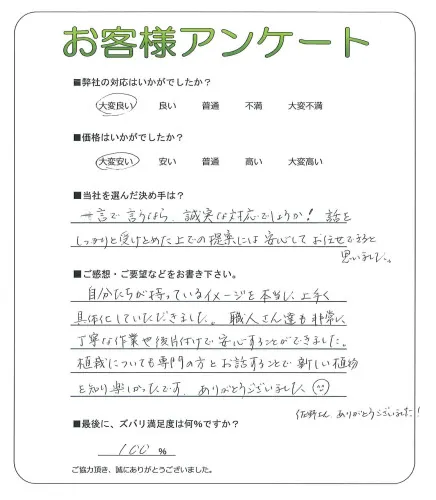 お客様アンケート
■弊社の対応はいかがでしたか？
大変良い 良い 普通 不満 大変不満
■価格はいかがでしたか？
大変安い 安い 普通 高い 大変高い
■当社を選んだ決め手は？
一言で言うなら、誠実な対応でしょうか！ 話を
しっかりと受けとめた上での提案には安心してお任せできると
思いました。
■ご感想・ご要望などをお書き下さい。
自分たちが持っているイメージを本当に上手く
具体化していただきました。職人さん達も非常に
丁寧な作業や後片付けで安心することができました。
植栽についても専門の方とお話することで新しい植物
を知り楽しかったです。ありがとうございました
佐野さん、ありがとうございました！
■最後に、ズバリ満足度は何%ですか？
100 %
ご協力頂き、誠にありがとうございました。